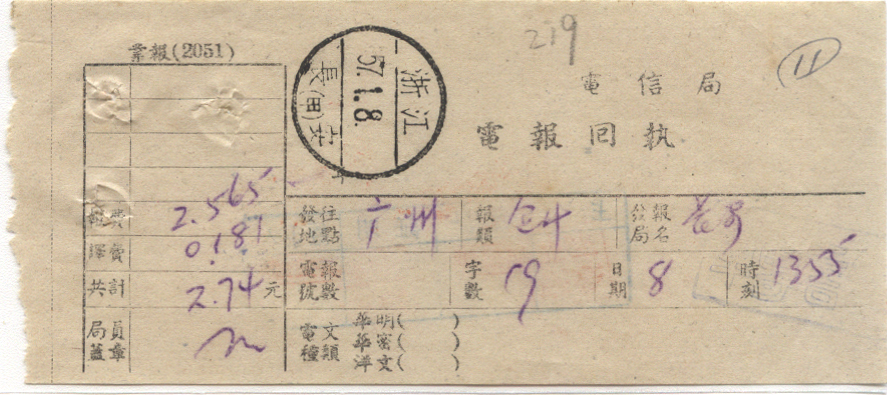 219
11
業報(2051)
浙江
57.1.8.
長安
電信局
電報回執
報費 2.565
譯費 0.181
共計 2.74 元
局員蓋章
發往地點 广州
報類
發報局名
電報號數
字數 19
日期 8
時刻 1355
電文種類
華明( )
華密( )
洋文( )